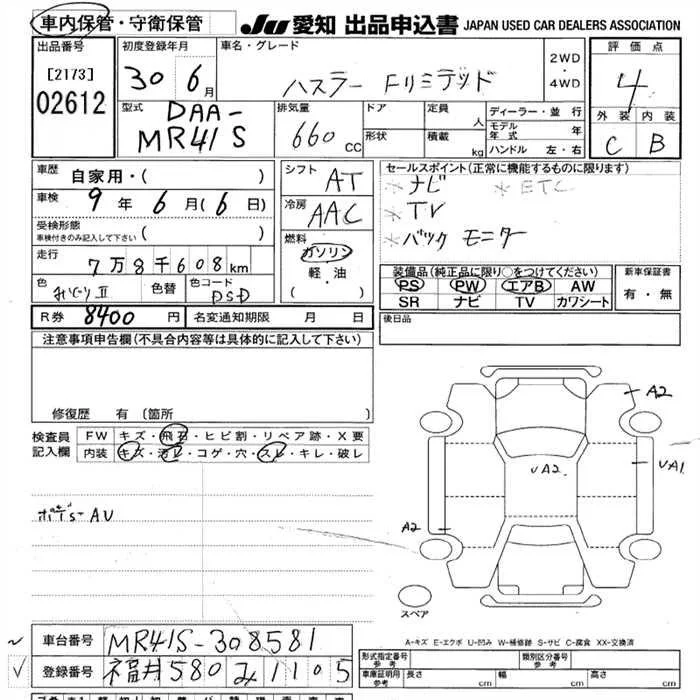 車内保管・守衛保管 JU 愛知 出品申込書 JAPAN USED CAR DEALERS ASSOCIATION
出品番号 初度登録年月 車名・グレード 評価点
[2173] 30 6月 ハスラー Fリミテッド 2WD・4WD 4
02612 型式 DAA-MR41S 排気量 660 CC ドア 定員 人 ディーラー・並行 外装 内装
形状 積載 kg モデル年式 年 C B
ハンドル 左・右
車歴 自家用・( ) シフト AT セールスポイント(正常に機能するものに限ります)
車検 9年 6月(6日) 冷房 AAC *ナビ *ETC
受検形態 *TV
車検付きのみ記入して下さい ( ) 燃料 *バックモニター
走行 7万8千608km ガソリン
軽・油 装備品(純正品に限り○をつけてください) 新車保証書
色 色替 色コード ( ) PS PW エアB AW 有・無
SR ナビ TV カワシート
R券 8400 円 名変通知期限 月 日 後日品
注意事項申告欄(不具合内容等は具体的に記入して下さい)
修復歴 有 〔箇所 〕
検査員 FW キズ・飛石・ヒビ割・リペア跡・X要
記入欄 内装 キズ・汚レ・コゲ・穴・スレ・キレ・破レ
A2
VA2
VA1
A2
スペア
A-キズ E-エクボ U-凹み W-補修跡 S-サビ C-腐食 XX-交換済
車台番号 MR41S-308581
登録番号 福井 580 み 1105
形式指定番号 参考 類別区分番号 参考
車庫証明用 参考 長さ cm 幅 cm 高さ cm